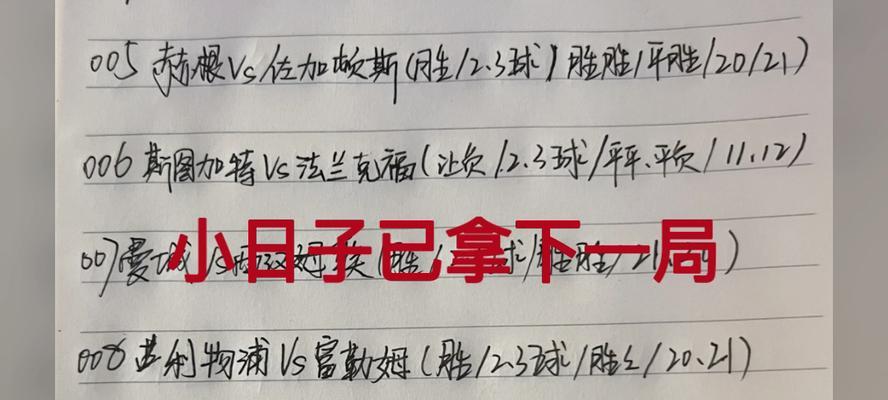 005 赫根Vs佐加顿斯(胜/2.3球)胜胜/平胜/20/21)
006 斯图加特Vs法兰克福(让负/2.3球/平平、平负/11.12)
小日子已拿下一局
007曼城Vs西汉姆联(胜/球/胜胜/21)
008 利物浦Vs富勒姆(胜/2.3球/胜/20、21)